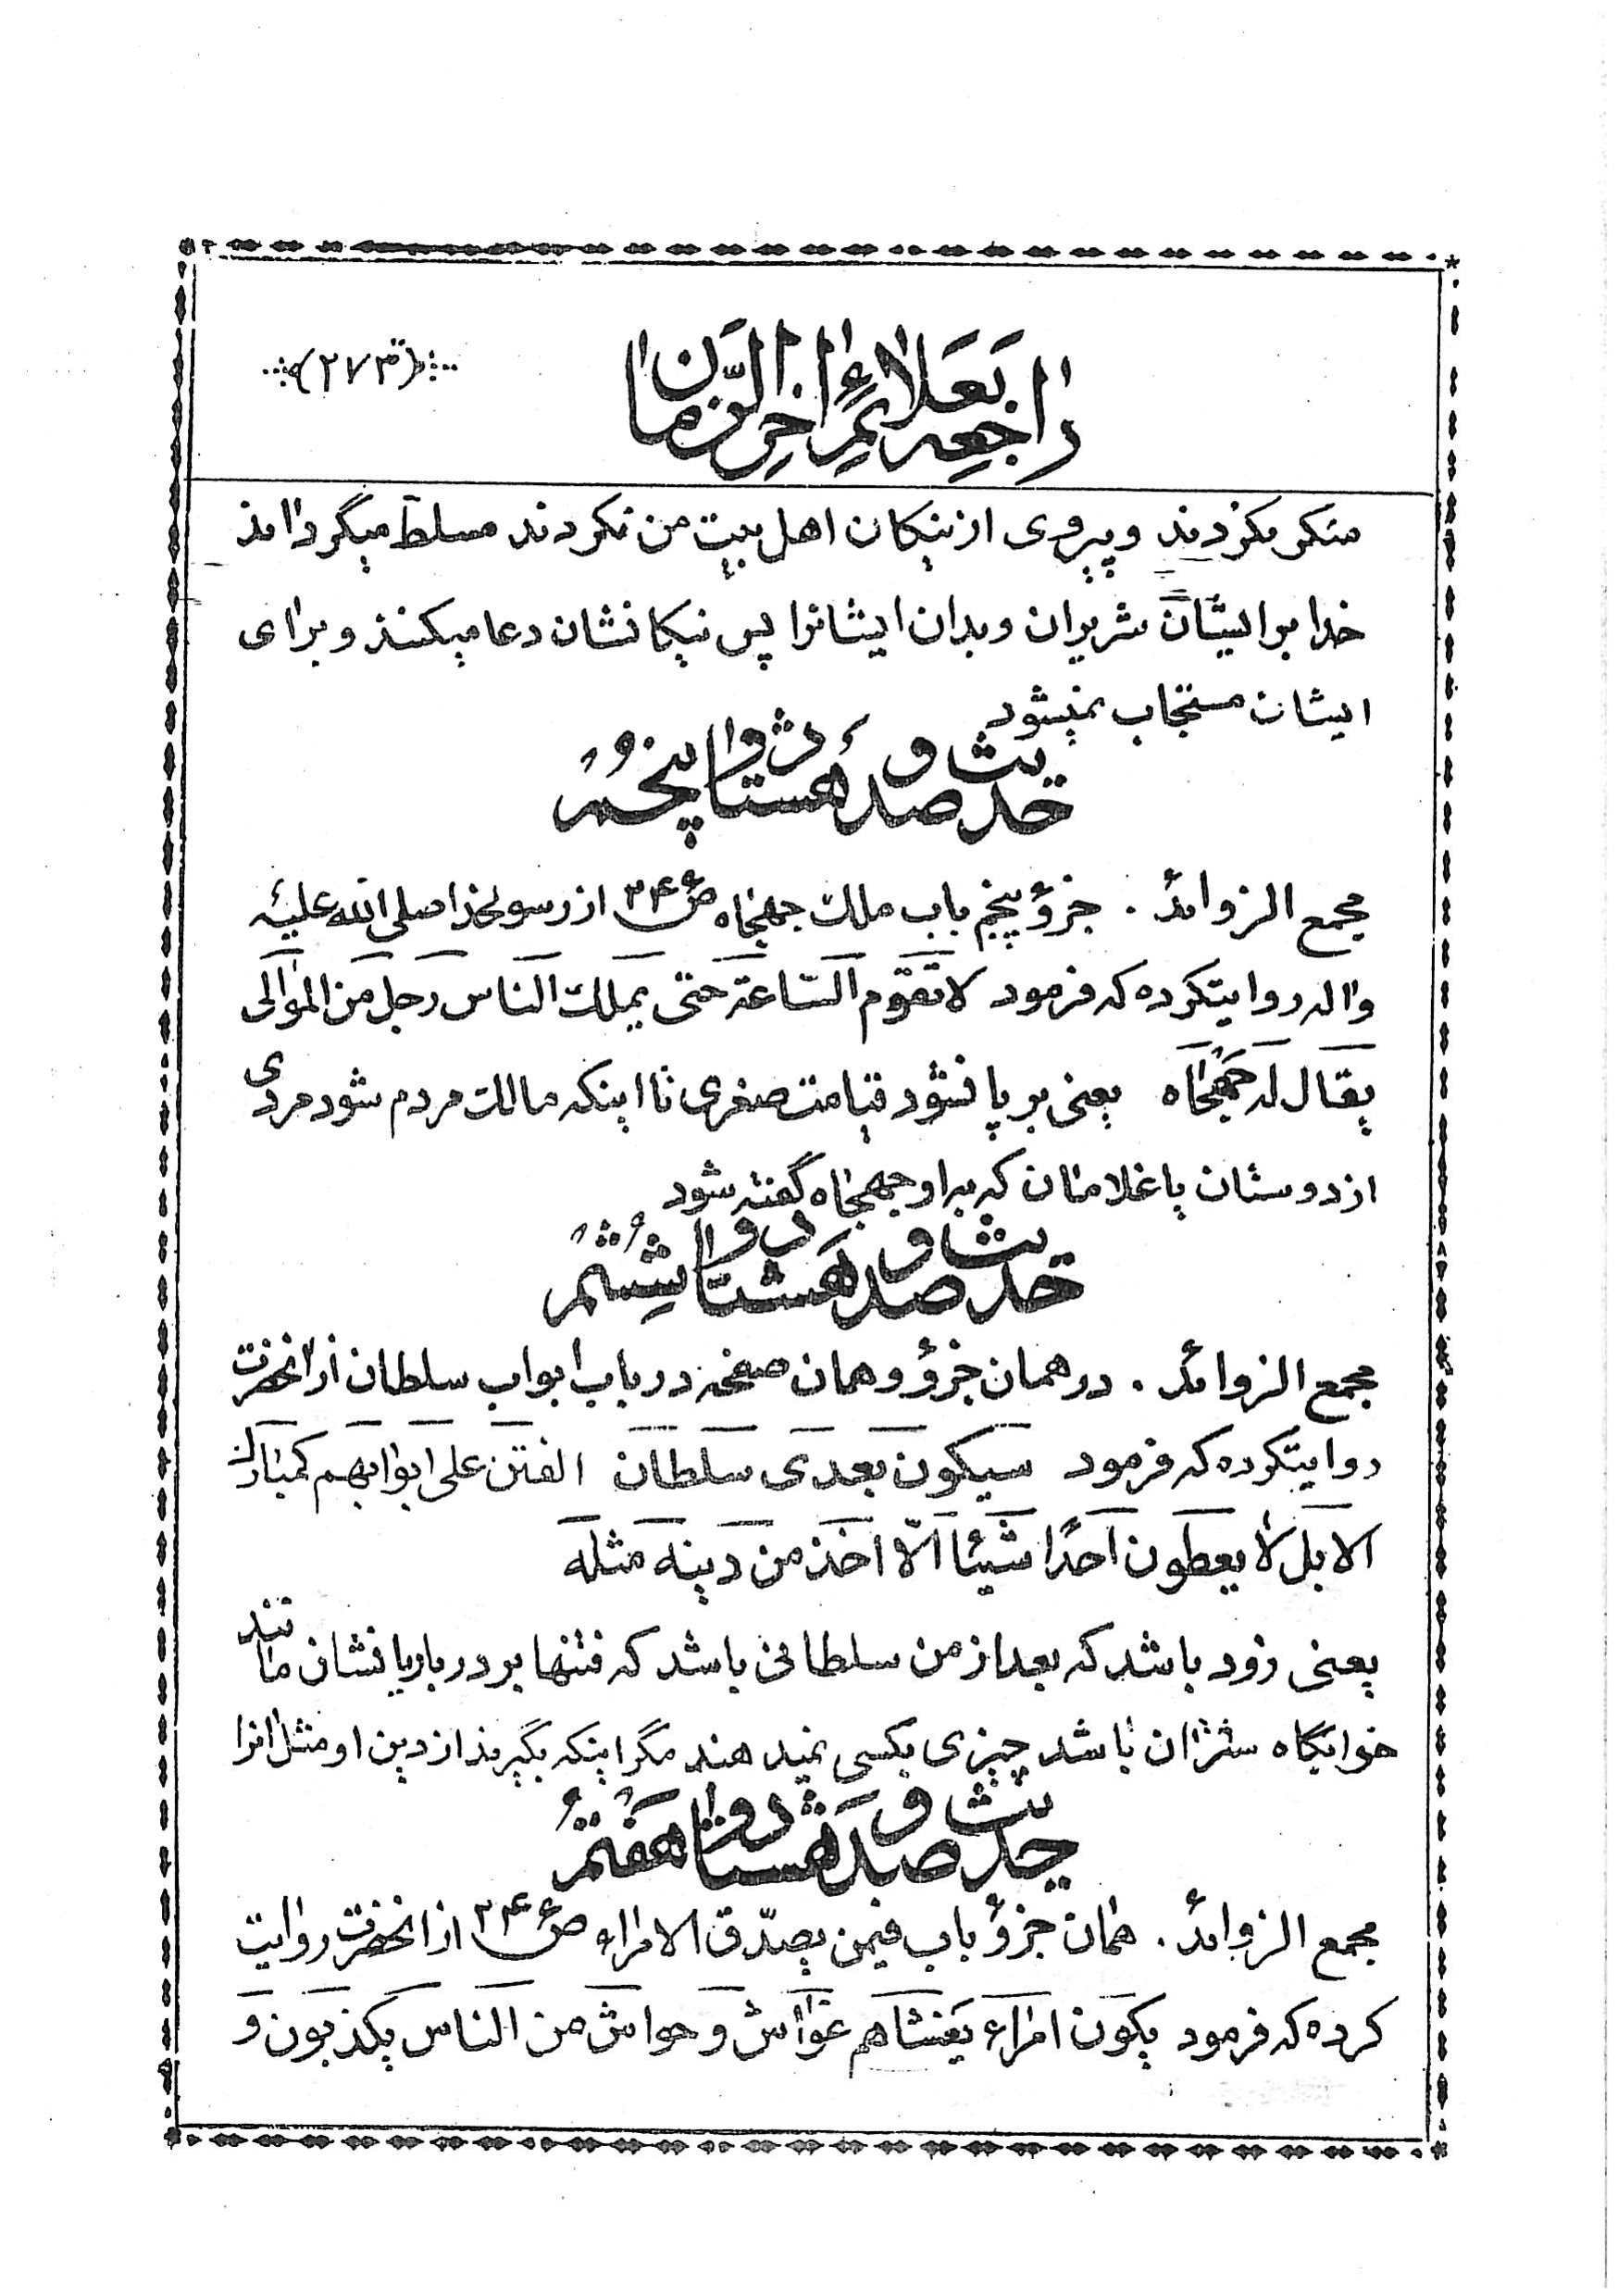 راجعه بعلائم آخر الزمان
(۲۷۳)
منکر نکردند و پیروی از نیکان اهل بیت من نکردند مسلط میگرداند
خدا بر ایشان شریران و بدان ایشانرا پس نیکانشان دعا میکنند و برای
ایشان مستجاب نمیشود
حدیث دویست و هشتاد و پنجم
مجمع الزوائد . جزؤ پنجم باب ملک جهجاه ص۲۴۶ از رسولخدا صلی الله علیه
واله روایتکرده که فرمود لا تقوم الساعة حتی یملک الناس رجل من الموالی
یقال له جهجاه یعنی بر پا نشود قیامت صغری تا اینکه مالک مردم شود مردی
از دوستان یا غلامان که به او جهجاه گفته شود
حدیث دویست و هشتاد و ششم
مجمع الزوائد . در همان جزؤ و همان صفحه در باب ابواب سلطان از آنحضرت
روایتکرده که فرمود سیکون بعدی سلطان الفتن علی ابوابهم کمبارک
الابل لا یعطون احدا شیئا الّا اخذ من دینه مثله
یعنی زود باشد که بعد از من سلطانی باشد که فتنها بر درباریانشان مانند
خوابگاه شتران باشد چیزی بکسی نمیدهند مگر اینکه بگیرند از دین او مثل آنرا
حدیث دویست و هشتاد و هفتم
مجمع الزوائد . همان جزؤ باب فیمن یصدّق الامراء ص۲۴۶ از آنحضرت روایت
کرده که فرمود یکون امراء یغشاهم غواش و حواش من الناس یکذبون و